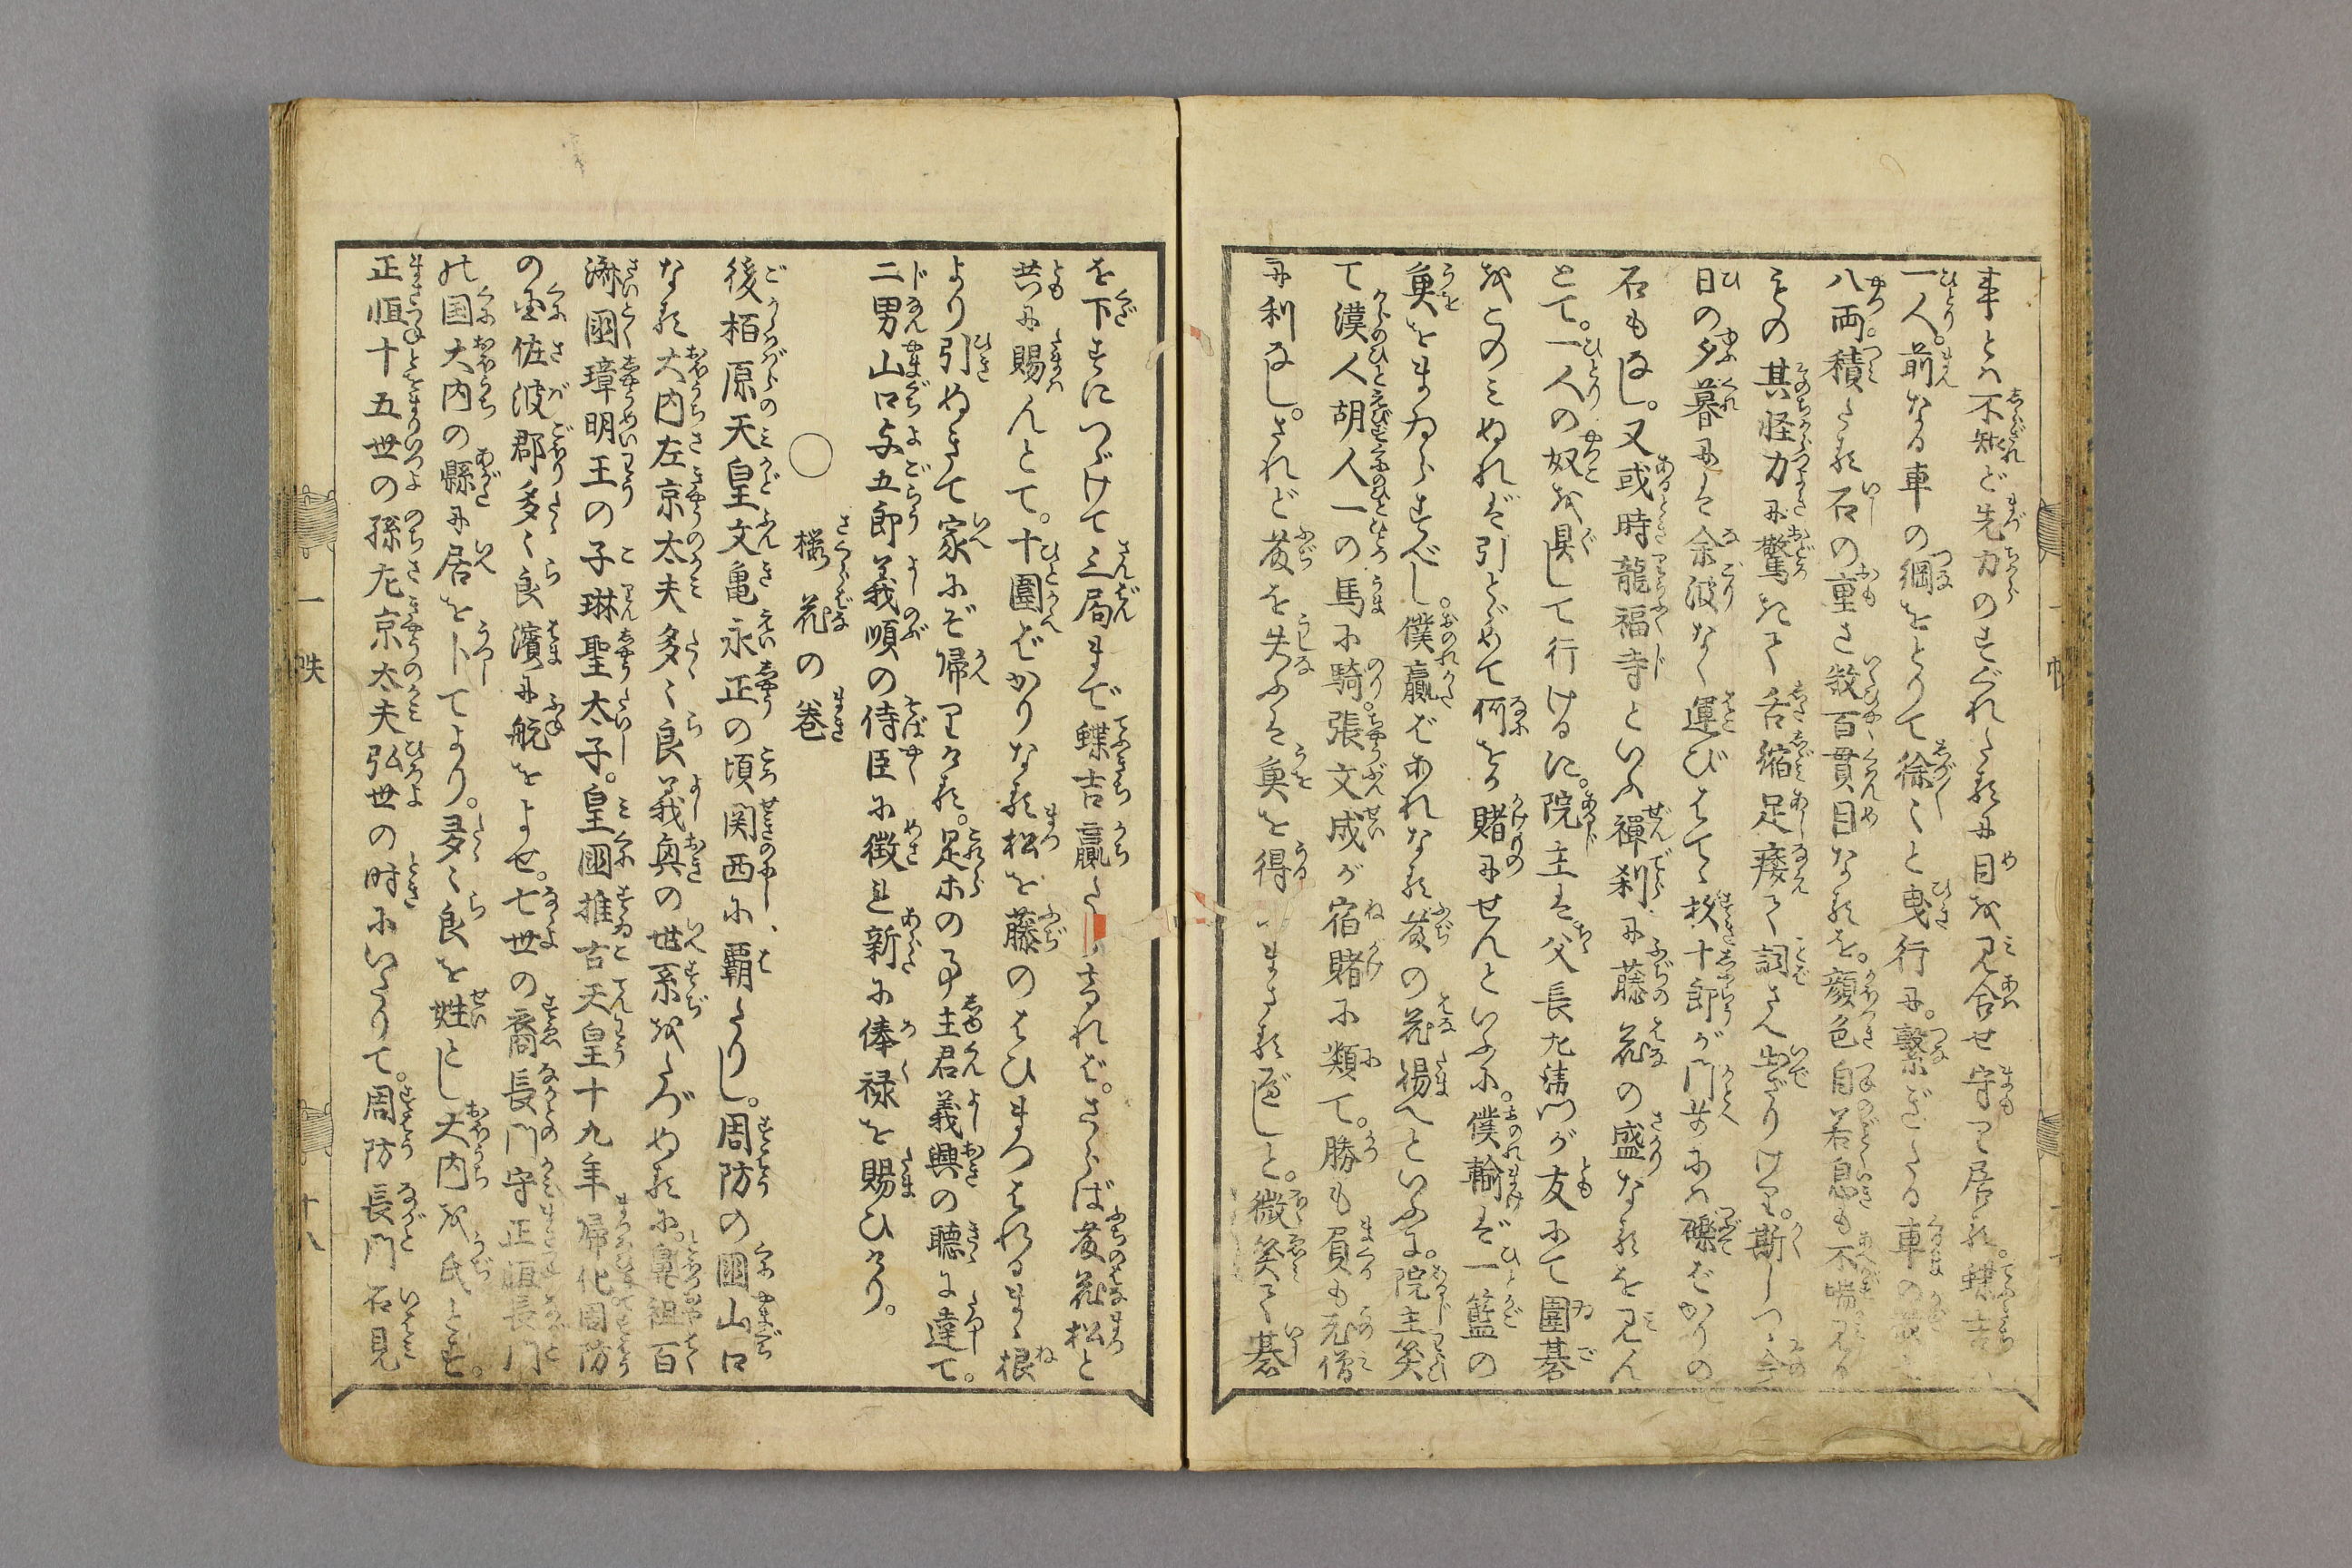 事とハ不知ど先力のすぐれたるに目を見合せ守りて居る。蝶吉ハ
一人。前なる車の綱をとりて徐〻と曳行に。繋ぎたる車の
八両。積たる石の重さ数百貫目なるを。顔色自若息も不喘
その其怪力に驚きて舌縮足痿て詞さへ出ざりけり。斯しつゝ
日の夕暮にハ余波なく運びはてゝ杉十郎が門前にハ礫ばかりの
石もなし。又或時龍福寺といふ禅刹に藤花の盛なるを見ん
とて。一人の奴を具して行けるに。院主は父長左衛門が友にて囲碁
をこのミぬれば引とゞめて何をか賭にせんといふに。僕輸ば一籃の
魚をまゐらすべし。僕贏ばあれなる藤の花賜へといふに。院主笑
て漢人胡人一の馬に騎。張文成が宿賭に類て。勝も負も
に利なし。されど藤を失ふは魚を得るにまさるべしと。微笑て碁
を下すにつゞけて三局まで蝶吉贏たりければ。さらば藤花松と
共に賜んとて。十囲ばかりなる松を藤のはひまつはれるまゝ根
より引ぬきて家にぞ帰りける。是等の事主君義興の聴に達て。
二男山口与五郎義順の侍臣に徴れ新に俸禄を賜ひけり。
○ 桜花の巻
後柏原天皇文亀永正の頃関西に覇たりし。周防の国山口
なる大内左京太夫多〻良義興の世系をたづぬるに。鼻祖百
済国璋明王の子琳聖太子。皇国推古天皇十九年帰化周防
の国佐波郡多〻良濱に舩をよせ。七世の裔長門守正恒長門
の国大内の縣に居を卜てより。多〻良を姓とし大内を氏とす。
正恒十五世の孫左京太夫弘世の時にいたりて。周防長門石見
一帙
十八